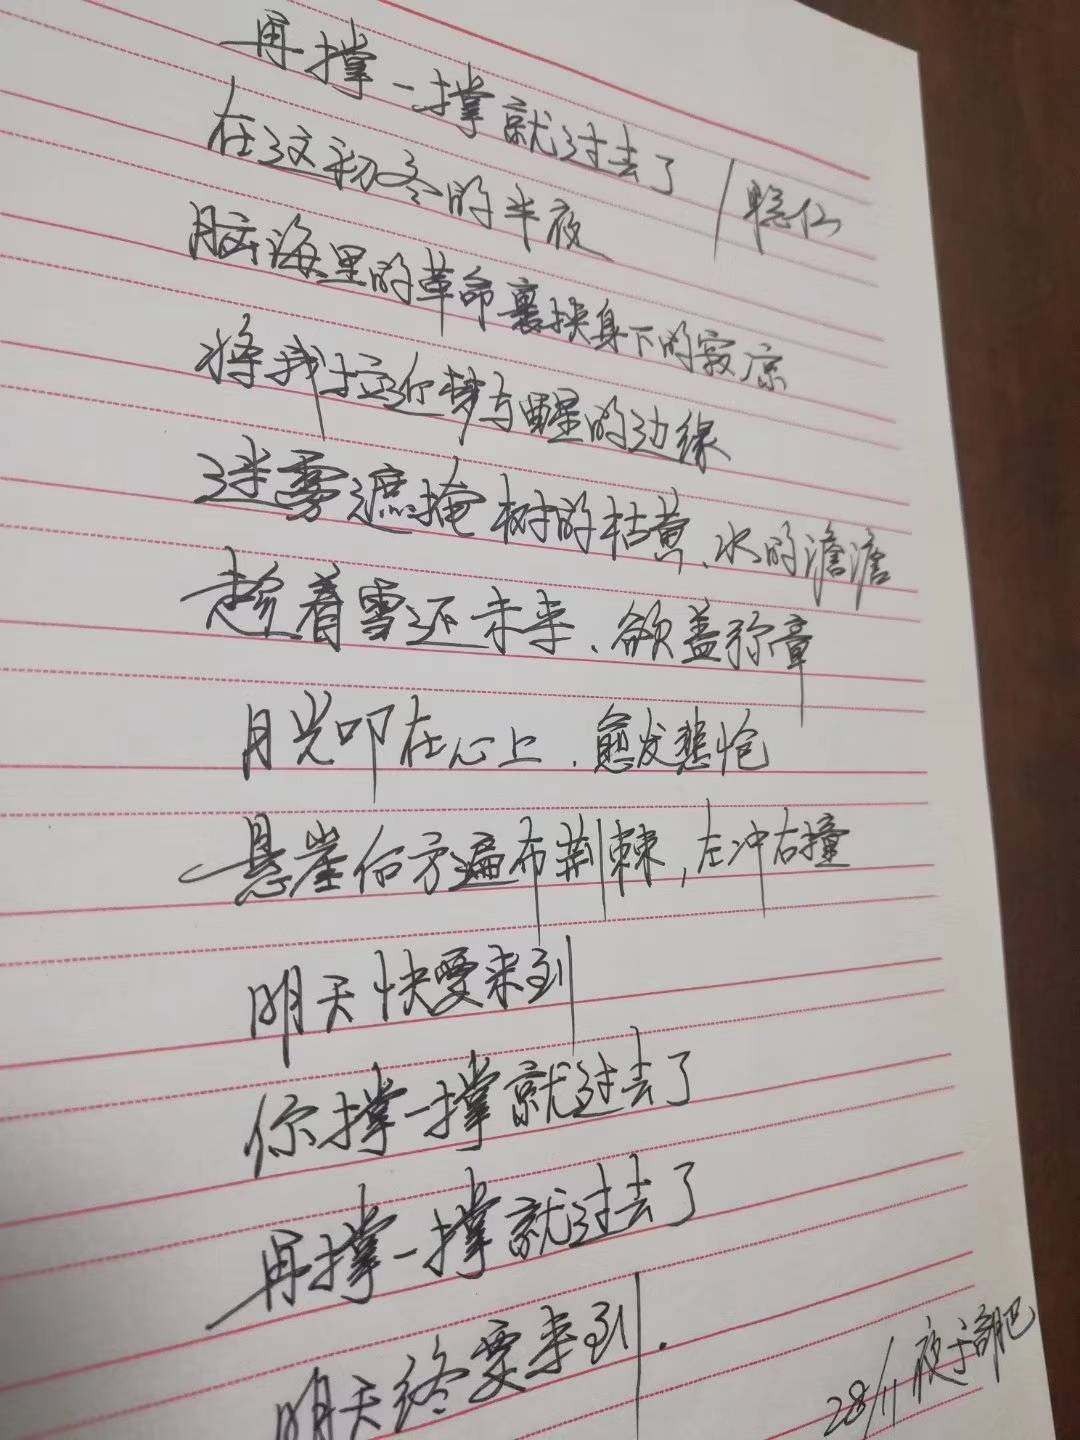 再撑一撑就过去了 / 稳仁
在这初冬的半夜
脑海里的革命裹挟身下的寂凉
将我拉近梦与醒的边缘
迷雾遮掩树的枯黄、水的澹澹
趁着雪还未来、欲盖弥章
月光叩在心上,愈发悲怆
悬崖伯方遍布荆棘,左冲右撞
明天快要来到
你撑一撑就过去了
再撑一撑就过去了
明天终要来到.
28/11夜于合肥